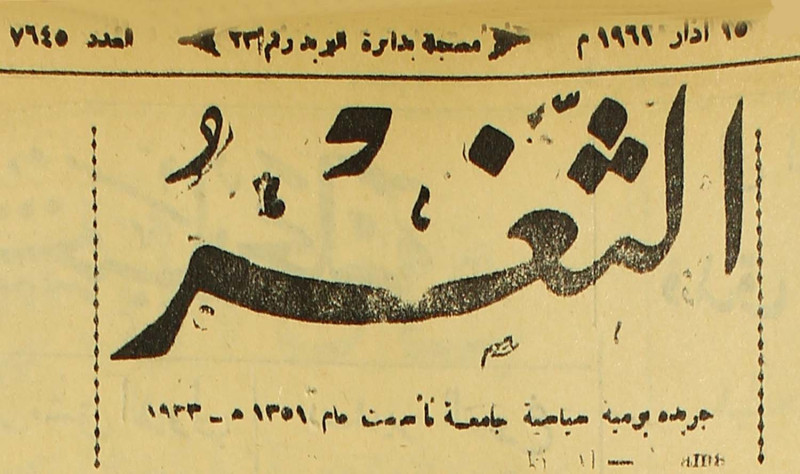 ١٥ اذار ١٩٦١ م مسجلة بدائرة البريد رقم ٢٣ العدد ٧٦٤٥
الثَّغْرُ
جريدة يومية سياسية جامعة تأسست عام ١٣٥١ ه - ١٩٣٣